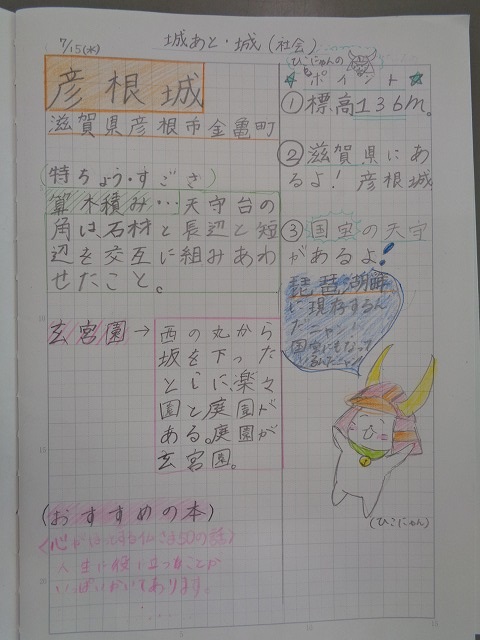 7/15(水)
城あと・城(社会)
彦根城
滋賀県彦根市金亀町
(特ちょう・すごさ)
算木積み…天守台の
角は、石材と長辺と短
辺を交互に組みあわ
せたこと。
玄宮園→
西の丸から
坂を下った
ところに楽々
園と庭園が
ある。庭園が
玄宮園。
(おすすめの本)
人生に役に立つことが
いっぱいかいてあります。
ひこにゃんの
ポイント
①標高136m。
②滋賀県にあ
るよ!彦根城
③国宝の天守
があるよ!
琵琶湖畔
に現存するん
だニャン!
国宝にもなって
いるんだニャン!
(ひこにゃん)